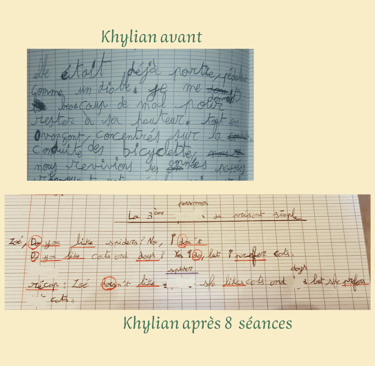 Khylian avant
était déjà partie
comme un diable. Je me
beaucoup de mal pour
rester à sa hauteur. Tout en
avançant, concentrés sur la
conduite des bicyclettes
nous revivions les
personne
La 3ème au présent simple
Zoé, Do you like spiders? No, I don't
Do you like cats and dogs? Yes I do, but I prefer cats.
récap: Zoé doesn't like she likes cats and dogs but she prefers
cats.
Khylian après 8 séances